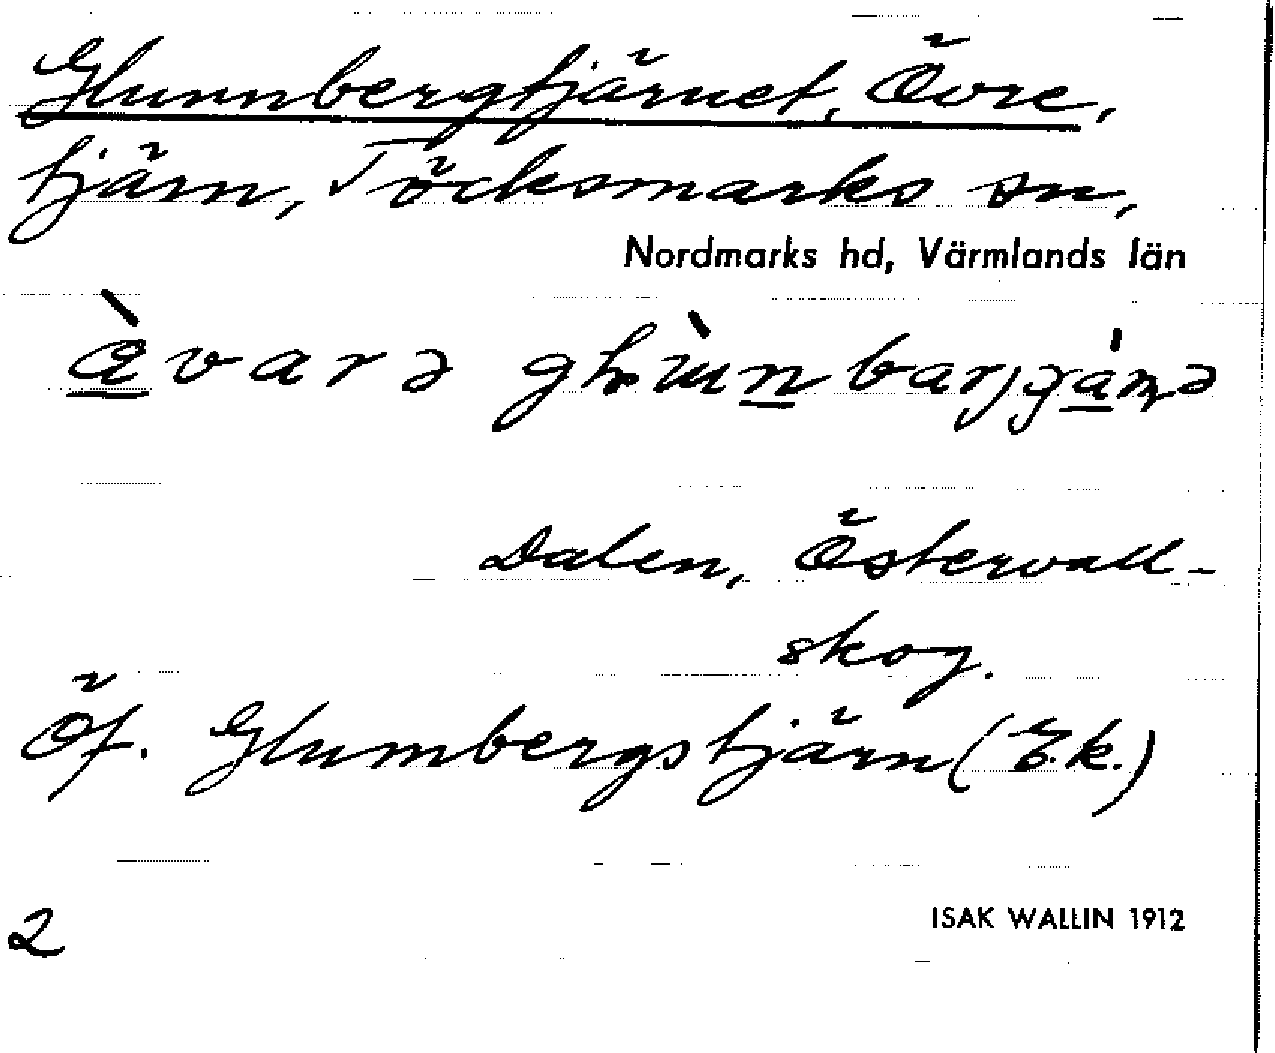 Glunnbergtjärnet, Övre,
tjärn, Töcksmarks sn,
Nordmarks hd, Värmlands län
Dalen, Östervall-
skog.
Öf. Glumbergstjärn (E.k.)
2
ISAK WALLIN 1912